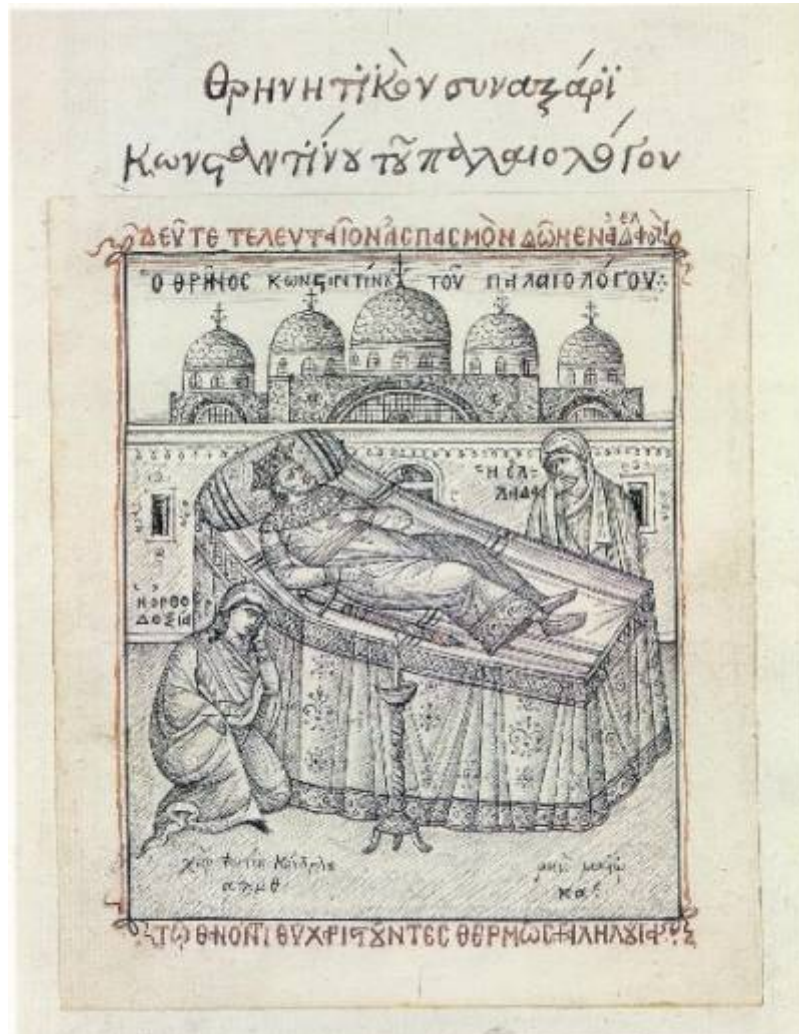 θρηνητικὸν συναξάρι
Κωνσταντίνου τοῦ παλαιολόγου
ΔΕΥΤΕ ΤΕΛΕΥΤΑΙΟΝ ΑΣΠΑΣΜΟΝ ΔΩΜΕΝ ΑΔΕΛΦΟΙ
Ὁ ΘΡΗΝΟΣ ΚΩΝΣΤΑΝΤΙΝΟΥ ΤΟΥ ΠΑΛΑΙΟΛΟΓΟΥ
Ἡ ΕΛ-
ΛΑΔΑ
Η ΟΡΘΟ
ΔΟΞΙΑ
χεὶρ Φωτίου Κόντογλου
Τῼ ΘΑΝΟΝΤΙ ΕΥΧΑΡΙΣΤΟΥΝΤΕΣ ΘΕΡΜΩΣ ΑΛΛΗΛΟΥΙΑ